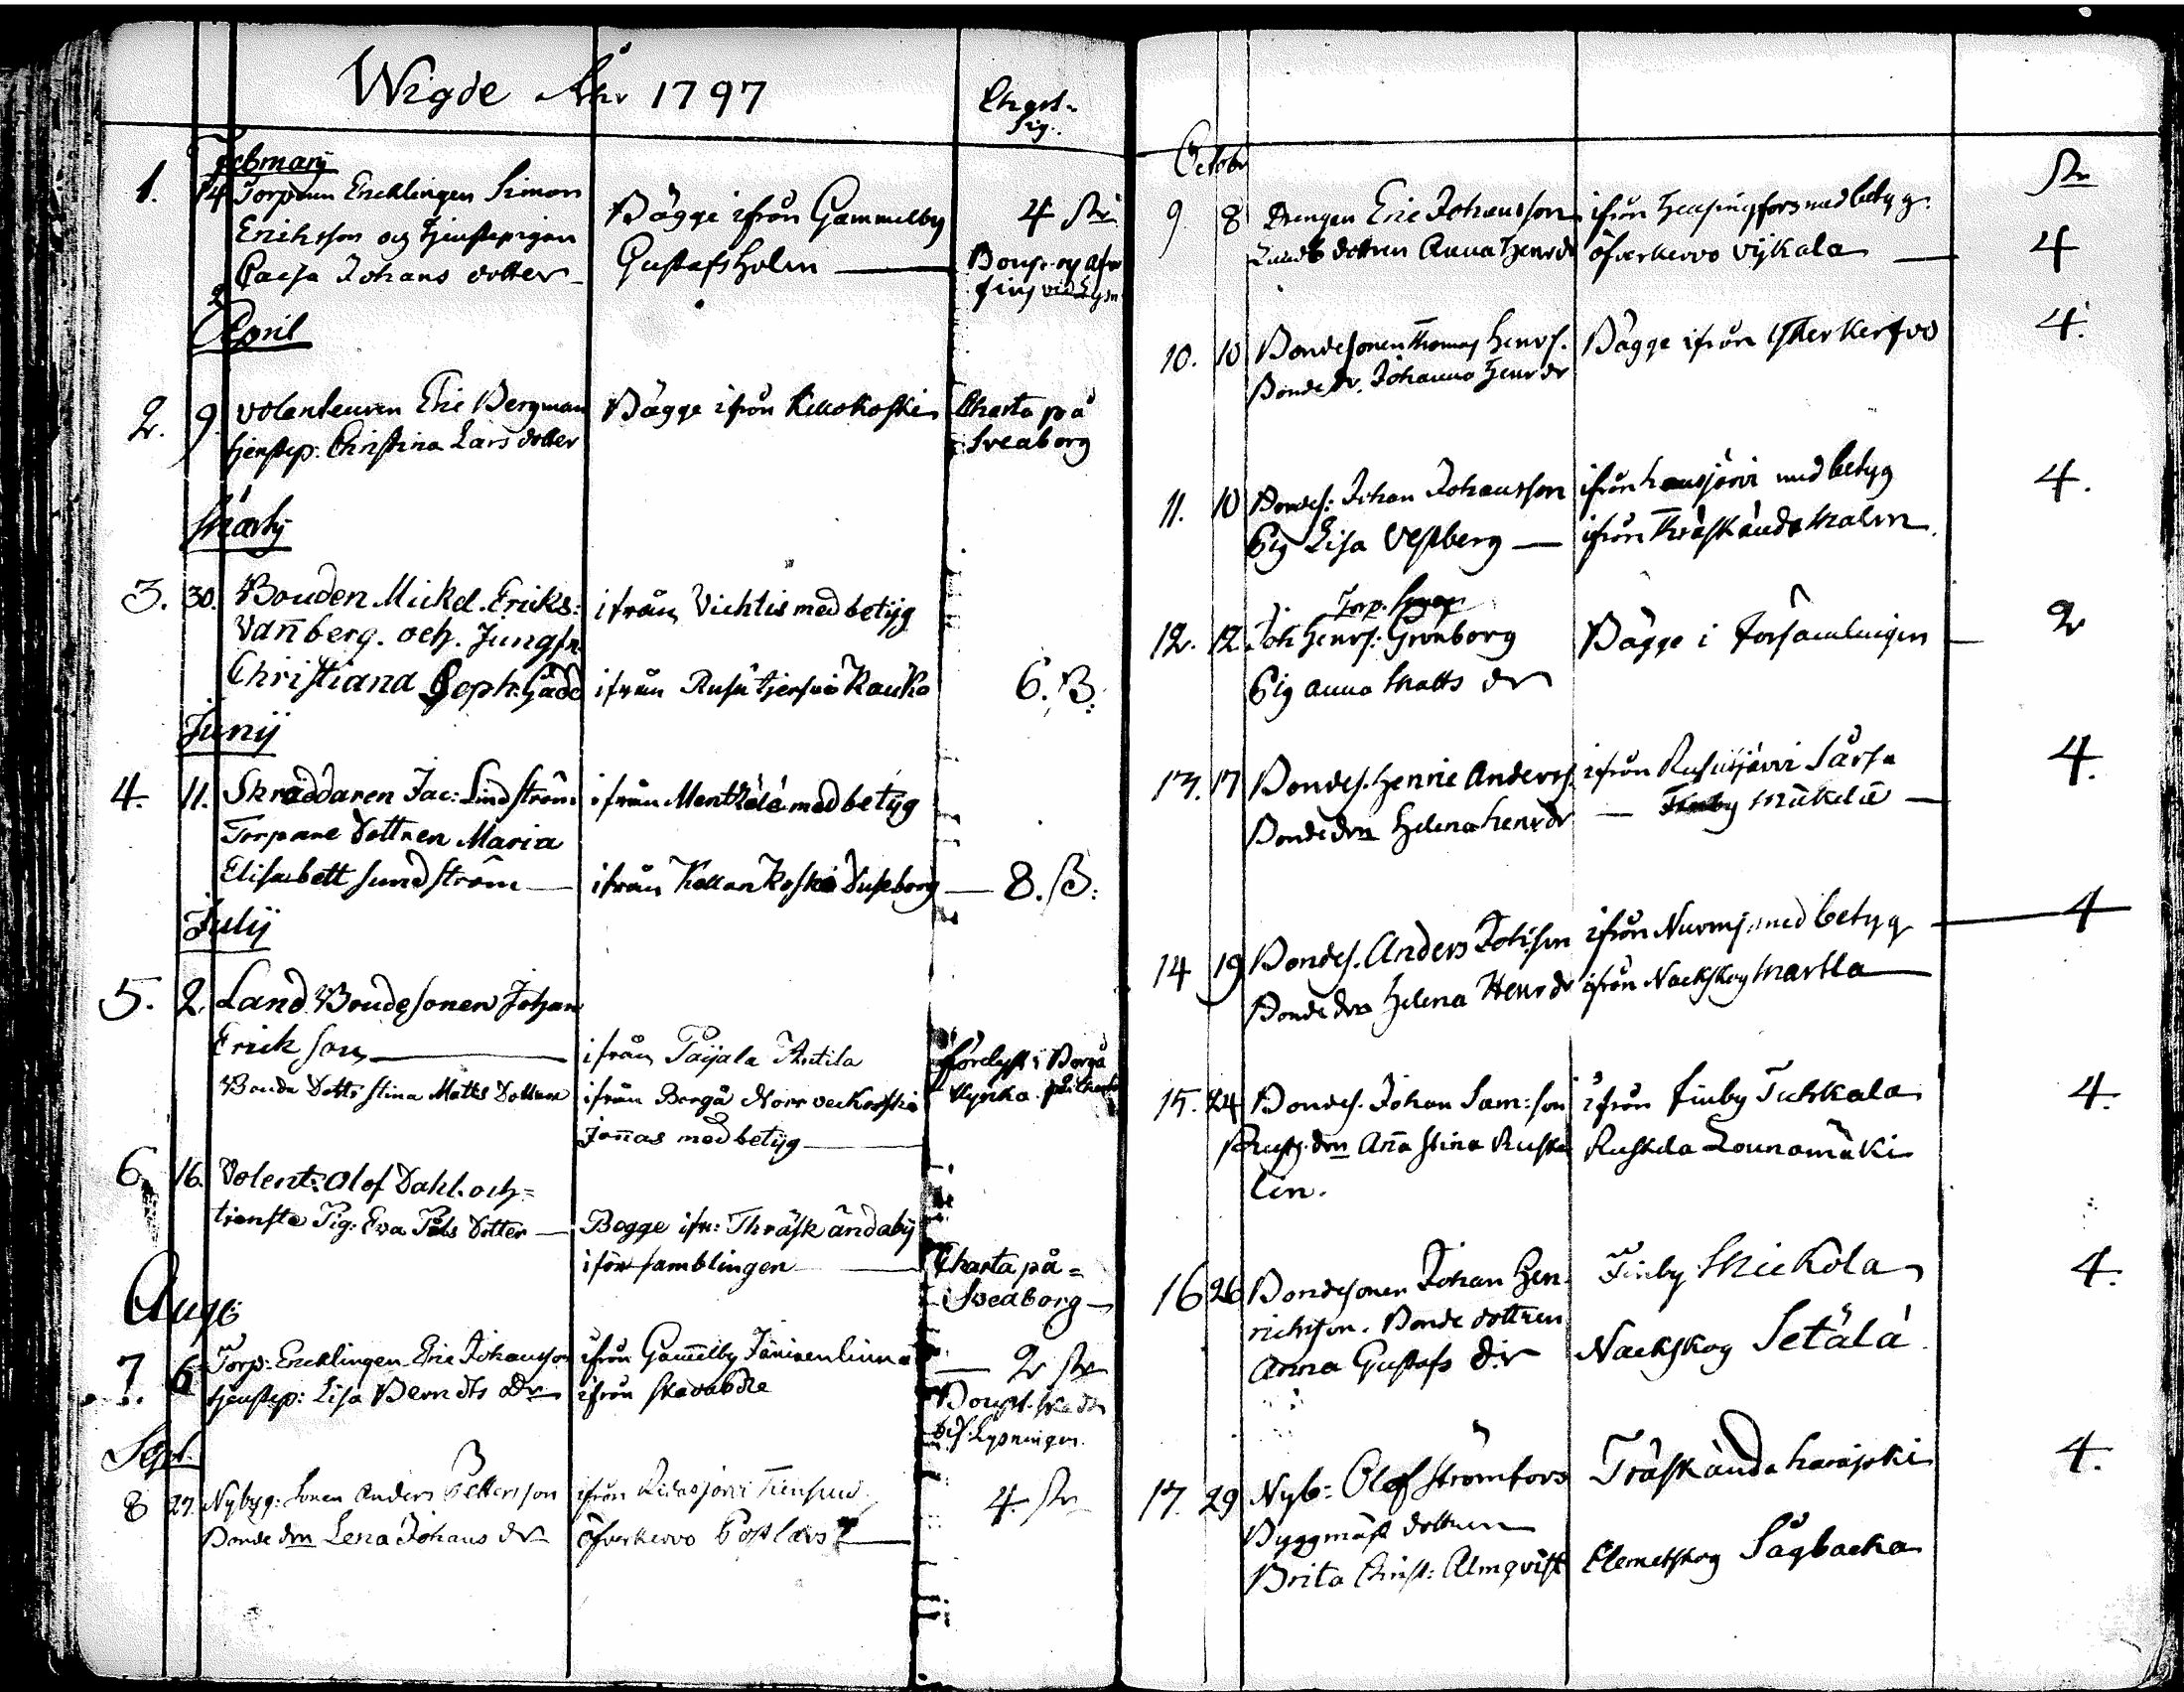 Wigde Åhr 1797
Chart.
Sig.
February
1. 14 Torpann Encklingen Simon
Eriksson och tjenstepigan
Caisa Johans dotter
Bägge ifrån Gammelby
Gustafsholm
4 sk
April
2. 9. Volenteuren Eric Bergman
tjenstep: Christina Lars dotter
Bägge ifrån Kellokoski
Charta på
Sveaborg
Martij
3. 30. Bonden Mickel. Ericks:
Vanberg. och. Jungfr.
Christiana Seph: Gadd
ifrån Vichtis med betÿg
ifrån Rusutjerfvi Rauko
6. ß:
Junij
4. 11. Skräddaren Jac: Lindström
Torpare Dottren Maria
Elisabett Sundström
ifrån Mentzälä med betÿg
ifrån Kellankoski
8. ß:
Julij
5. 2. Land Bondesonen Johan
Erik son
ifrån Paijala Antila
Bonde Dottr Stina Matts Dotter
ifrån Borgå Norr veckoski
Jonnas med betÿg
i Borgå
Kyrka
6. 16. Volent: Olof Dahl. och=
tienste Pig: Eva Dotter
Begge ifr: Thräsk ändabÿ
i församblingen
Charta på=
Sveaborg
Aug:
7. 6 Torp: Encklingen Eric Johansson
tjenstep: Lisa Berndts Dr
ifrån Gammelby Janisenlinna
ifrån
2 sk
Lysningen
Sept.
8 27. Nybyg: Sonen Anders Pettersson
Bonde dn Lena Johans dr
ifrån
Öfverkervo
4. sk
Octobr
sk
9. 8 Drengen Eric Johansson
dottren Anna Henr dr
ifrån Helsingfors med betyg.
öfverkervo Vÿkala
4
10. 10 Bondesonen Thomas Henrs.
Bonde dr. Johanna Henr dr
Bägge ifrån Ytterkerfvo
4.
11. 10 Bondes: Johan Johansson
Pig Lisa Vestberg
ifrån Hausjärvi med betyg
ifrån Träskända Malm
4.
12. 12. Torp.
Joh Henrs: Grönborg
Pig Anna Matts dr
Bägge i Församlingen
2
13. 17 Bondes. Henric Anderss.
Bonde drn Helena Henr dr
ifrån Rusutjärvi Särsa
Mäkelä
4.
14 19 Bondes. Anders Johsson
Bonde drn Helena Henr dr
ifrån Nurmj: med betyg
ifrån Nackskog Martla
4
15. 24 Bondes. Johan Sam: son
drn Anna Stina
lin.
ifrån Finby Tuhkala
Ruskela Lounamäki
4.
16 26 Bondesonen Johan Hen
richsson. Bonde dottren
Anna Gustafs dr
Finby Mickola
Nackskog Setälä
4.
17. 29 Nyb: Olof Strömfors
Byggmäst dottren
Brita Christ: Almqvist
Träskända
Clemetskog Sågbacka
4.